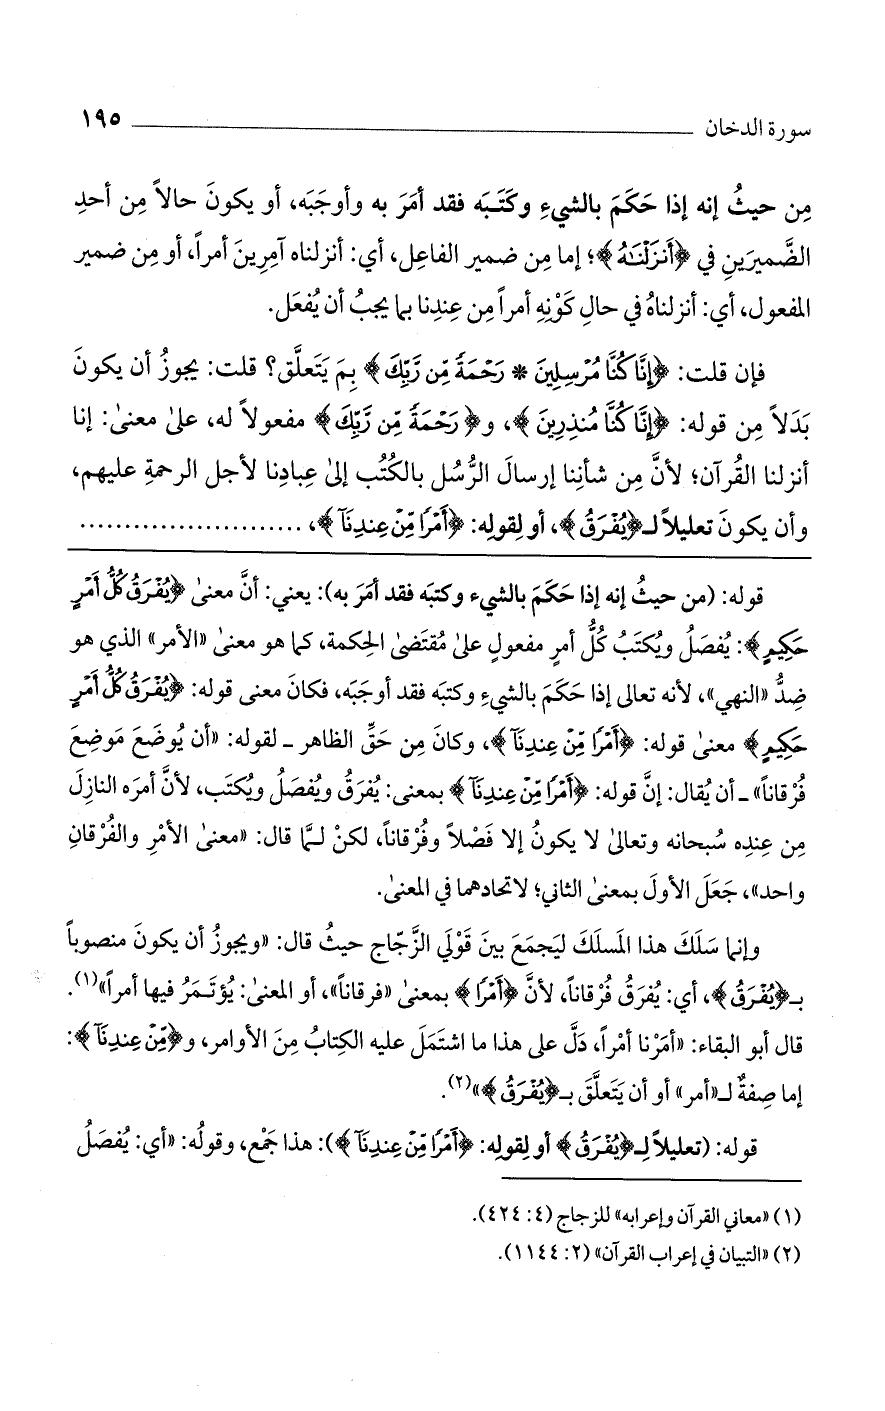 سورة الدخان ١٩٥
مِن حيثُ إنه إذا حَكَمَ بالشيءِ وكَتَبَه فقد أمَرَ به وأوجَبَه، أو يكونَ حالاً مِن أحدِ
الضَّميرَينِ في ﴿أَنزَلْنَاهُ﴾؛ إما مِن ضميرِ الفاعِل، أي: أنزلناه آمِرِينَ أمراً، أو مِن ضميرِ
المفعول، أي: أنزلناهُ في حالِ كَوْنِهِ أمراً مِن عِندِنا بما يجبُ أن يُفعَل.
فإن قلت: ﴿إِنَّا كُنَّا مُرْسِلِينَ * رَحْمَةً مِّن رَّبِّكَ﴾ بِمَ يَتَعلَّق؟ قلت: يجوزُ أن يكونَ
بَدَلاً مِن قوله: ﴿إِنَّا كُنَّا مُنذِرِينَ﴾، و﴿رَحْمَةً مِّن رَّبِّكَ﴾ مفعولاً له، علىٰ معنىٰ: إنا
أنزلنا القُرآن؛ لأنَّ مِن شأنِنا إرسالَ الرُّسُل بالكُتُب إلىٰ عِبادِنا لأجل الرحمةِ عليهم،
وأن يكونَ تعليلاً لـ﴿يُفْرَقُ﴾، أو لِقوله: ﴿أَمْرًا مِّنْ عِندِنَآ﴾، ........................
قوله: (من حيثُ إنه إذا حَكَمَ بالشيء وكتبَه فقد أمَرَ به): يعني: أنَّ معنىٰ ﴿يُفْرَقُ كُلُّ أَمْرٍ
حَكِيمٍ﴾: يُفصَلُ ويُكتَبُ كُلُّ أمرٍ مفعولٍ علىٰ مُقتَضىٰ الحِكمة، كما هو معنىٰ «الأمر» الذي هو
ضِدُّ «النهي»، لأنه تعالى إذا حَكَمَ بالشيءِ وكتبَه فقد أوجَبَه، فكانَ معنى قوله: ﴿يُفْرَقُ كُلُّ أَمْرٍ
حَكِيمٍ﴾ معنىٰ قوله: ﴿أَمْرًا مِّنْ عِندِنَآ﴾، وكانَ مِن حَقِّ الظاهر ـ لقوله: «أن يُوضَعَ مَوضِعَ
فُرْقاناً» ـ أن يُقال: إنَّ قوله: ﴿أَمْرًا مِّنْ عِندِنَآ﴾ بمعنى: يُفرَقُ ويُفصَلُ ويُكتَب، لأنَّ أمرَه النازِلَ
مِن عِندِه سُبحانه وتعالىٰ لا يكونُ إلا فَصْلاً وفُرْقاناً، لكنْ لـمَّا قال: «معنىٰ الأمْرِ والفُرْقانِ
واحد»، جَعَلَ الأولَ بمعنىٰ الثاني؛ لاتحادهما في المعنىٰ.
وإنما سَلَكَ هذا المَسلَكَ ليَجمَعَ بينَ قَوْلَي الزَّجّاج حيثُ قال: «ويجوزُ أن يكونَ منصوباً
بـ﴿يُفْرَقُ﴾، أي: يُفرَقُ فُرْقاناً، لأنَّ ﴿أَمْرًا﴾ بمعنىٰ «فرقاناً»، أو المعنىٰ: يُؤتَـمَرُ فيها أمراً»(١).
قال أبو البقاء: «أمَرْنا أمْراً، دَلَّ على هذا ما اشتَمَلَ عليه الكِتابُ مِنَ الأوامر، و﴿مِّنْ عِندِنَآ﴾:
إما صِفةٌ لـ«أمر» أو أن يَتَعلَّق بـ﴿يُفْرَقُ﴾»(٢).
قوله: (تعليلاً لِـ﴿يُفْرَقُ﴾ أو لِقولِه: ﴿أَمْرًا مِّنْ عِندِنَآ﴾): هذا جَمْع، وقولُه: «أي: يُفصَلُ
(١) «معاني القرآن وإعرابه» للزجاج (٤: ٤٢٤).
(٢) «التبيان في إعراب القرآن» (٢: ١١٤٤).